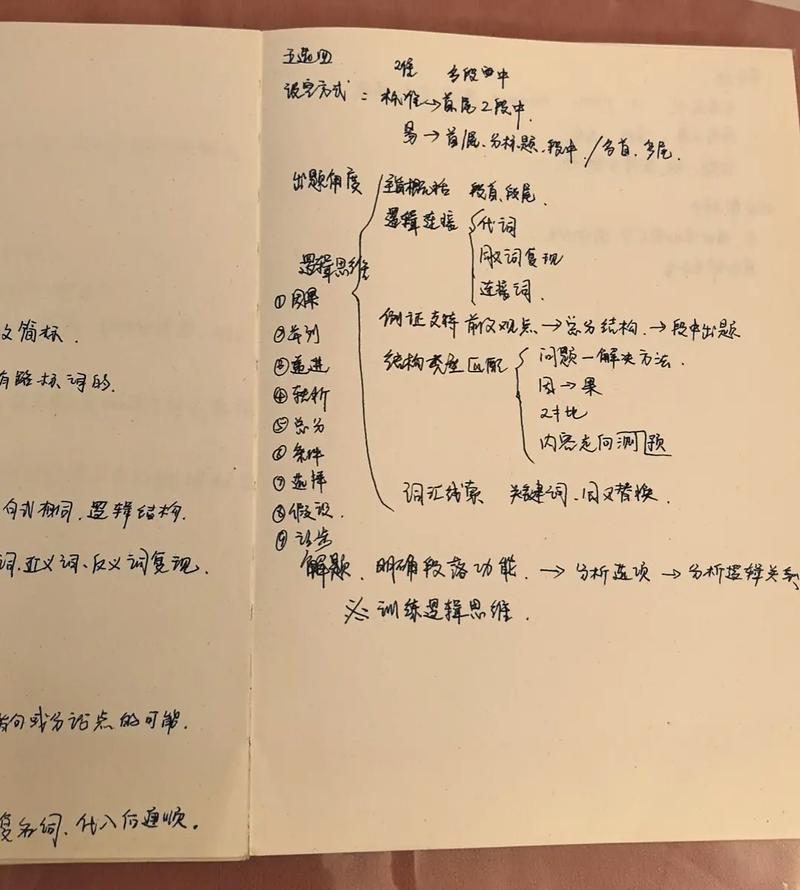 文简标.
有路标词的.
句式相同.逻辑结构.
词.近义词、反义词复现.
句或分论点的可能.
复名词、代入后通顺.
五选四
难 多段四中
设空方式: 标准→首尾2段中.
易→首尾、分标题、段中/多首,多尾.
出题角度
主旨概括 段首,段尾.
逻辑连接 代词
同义词复现
连接词.
例证支持 前后观点→总分结构.→段中出题
结构类型匹配 问题—解决方法.
因→果
对比
内容走向测预
词汇线索 关键词、同义替换.
逻辑思维
①因果
②并列
③递进
④转折
⑤总分
⑥条件
⑦选择
⑧假设.
⑨让步
解题.明确段落功能.→分析选项→分析逻辑关系
※训练逻辑思维.